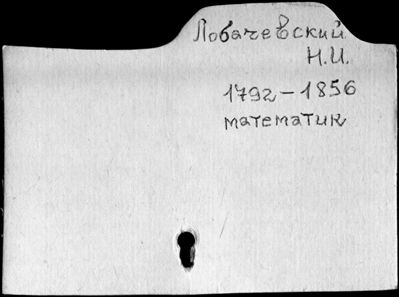 Лобачевский
Н.И.
1792-1856
математик